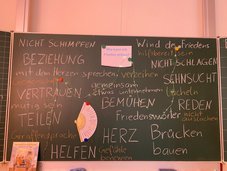 NICHT SCHIMPFEN
Wind des Friedens
hilfsbereit sein
BEZIEHUNG
NICHT SCHLAGEN
mit dem Herzen sprechen, verzeihen
SEHNSUCHT
gemeinsam
etwas unternehmen
VERTRAUEN
lächeln
mutig sein
BEMÜHEN
REDEN
TEILEN
Friedenswörter
nicht
auslachen
Giraffensprache
HERZ
Brücken
bauen
HELFEN
Gefühle
benennen